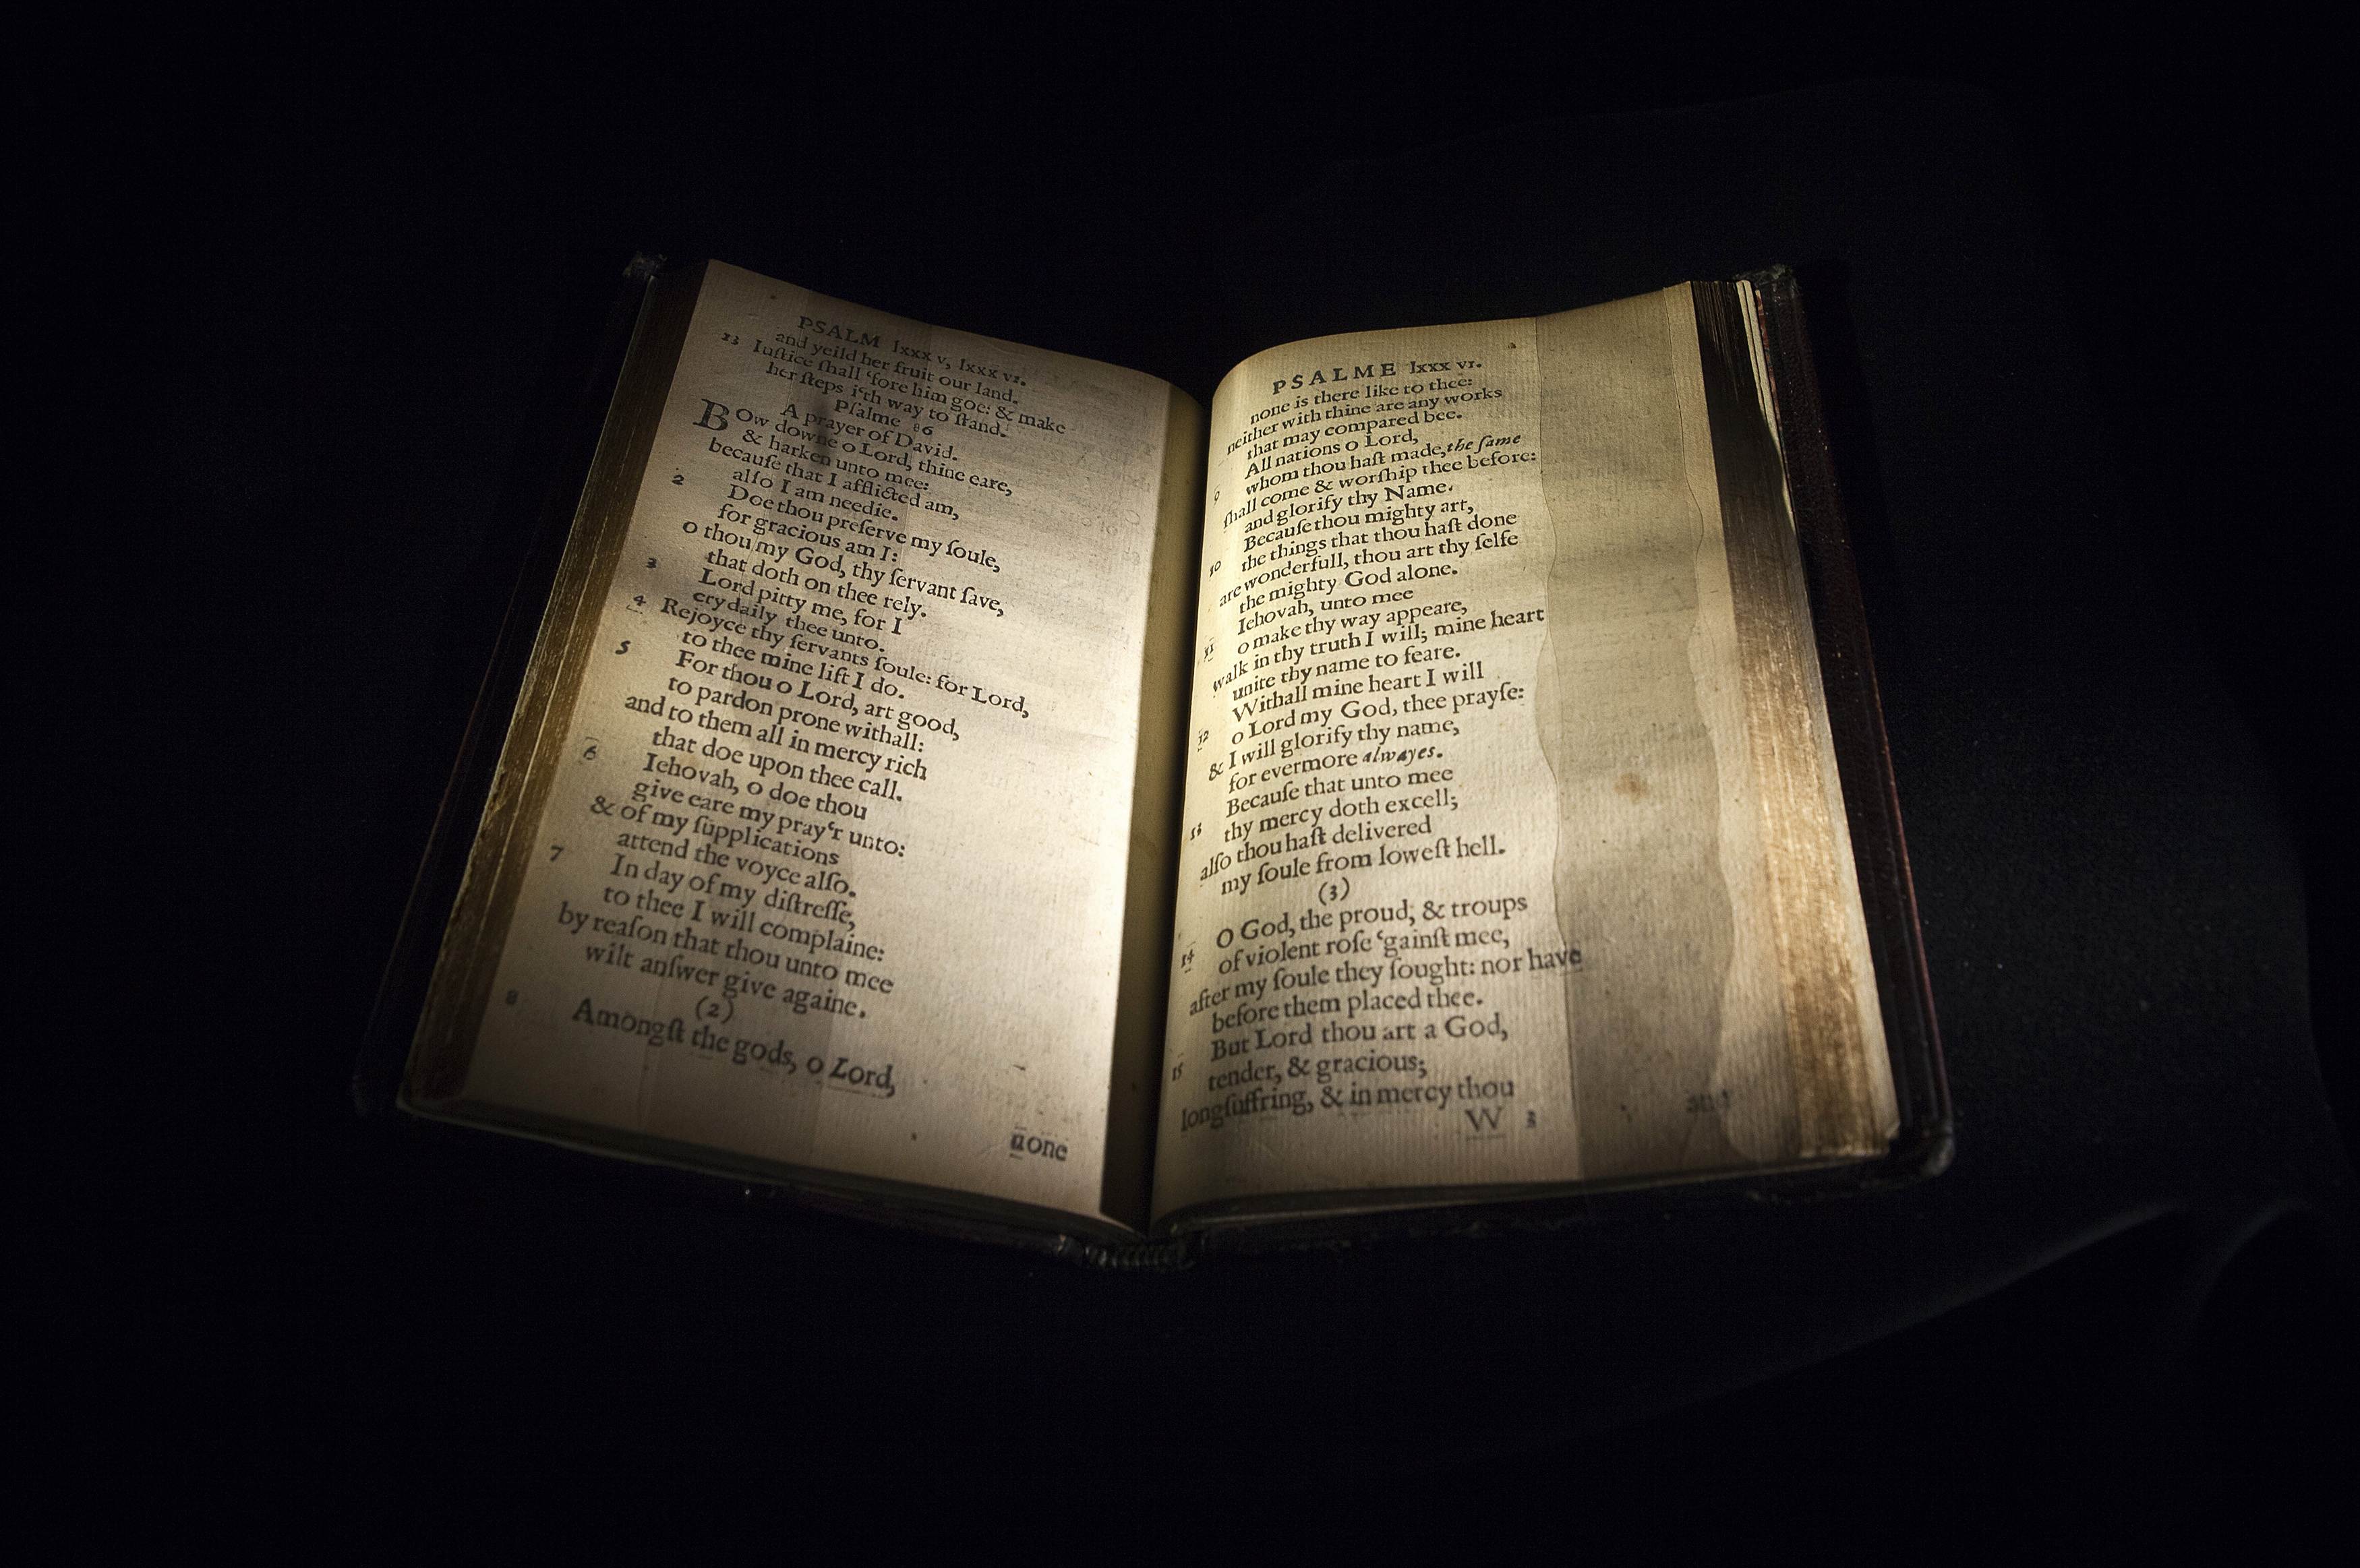 PSALM lxxx v, lxxx vı.
and yeild her fruit our land.
13 Iuſtice ſhall ‘fore him goe: & make
her ſteps i‘th way to ſtand.
Pſalme 86
A prayer of David.
BOw downe o Lord, thine eare,
& harken unto mee:
becauſe that I afflicted am,
alſo I am needie.
2 Doe thou preſerve my ſoule,
for gracious am I:
o thou my God, thy ſervant ſave,
that doth on thee rely.
3 Lord pitty me, for I
cry daily thee unto.
4 Rejoyce thy ſervants ſoule: for Lord,
to thee mine lift I do.
5 For thou o Lord, art good,
to pardon prone withall:
and to them all in mercy rich
that doe upon thee call.
6 Iehovah, o doe thou
give eare my pray‘r unto:
& of my ſupplications
attend the voyce alſo.
7 In day of my diſtreſſe,
to thee I will complaine:
by reaſon that thou unto mee
wilt anſwer give againe.
(2)
8 Amongſt the gods, o Lord,
none
PSALME lxxx vı.
none is there like to thee:
neither with thine are any works
that may compared bee.
9 All nations o Lord,
whom thou haſt made, the ſame
ſhall come & worſhip thee before:
and glorify thy Name.
10 Becauſe thou mighty art,
the things that thou haſt done
are wonderfull, thou art thy ſelfe
the mighty God alone.
11 Iehovah, unto mee
o make thy way appeare,
walk in thy truth I will; mine heart
unite thy name to feare.
12 Withall mine heart I will
o Lord my God, thee prayſe:
& I will glorify thy name,
for evermore alwayes.
13 Becauſe that unto mee
thy mercy doth excell;
alſo thou haſt delivered
my ſoule from loweſt hell.
(3)
14 O God, the proud, & troups
of violent roſe ‘gainſt mee,
after my ſoule they ſought: nor have
before them placed thee.
15 But Lord thou art a God,
tender, & gracious;
longſuffring, & in mercy thou
W 3
and